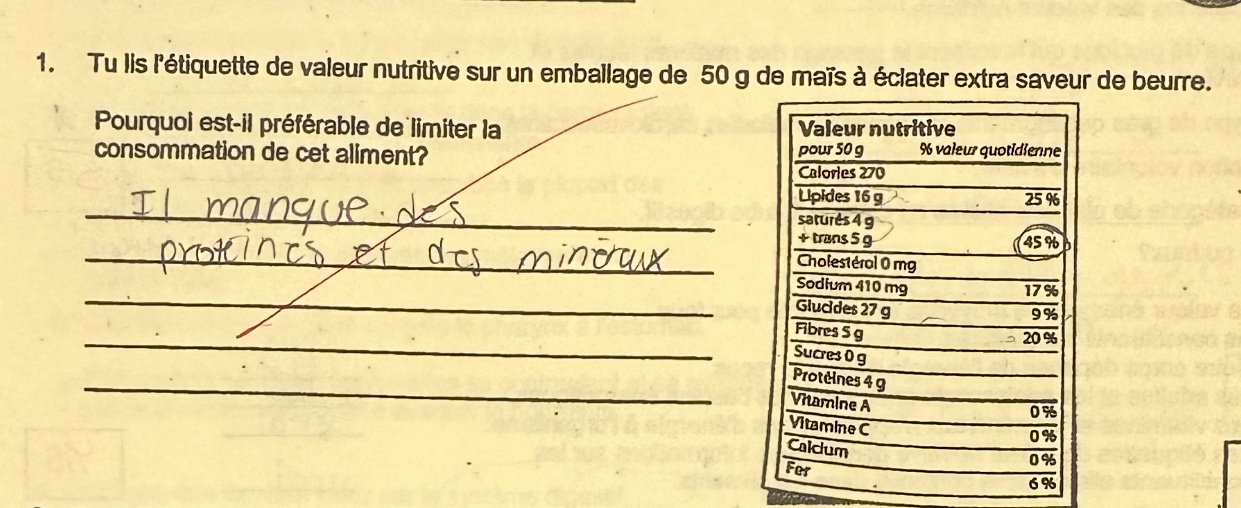 1. Tu lis l'étiquette de valeur nutritive sur un emballage de 50 g de maïs à éclater extra saveur de beurre.
Pourquoi est-il préférable de limiter la
consommation de cet aliment?
Il manque des
protéines et des minéraux
Valeur nutritive
pour 50 g % valeur quotidienne
Calories 270
Lipides 16 g 25 %
saturés 4 g
+ trans 5 g 45 %
Cholestérol 0 mg
Sodium 410 mg 17 %
Glucides 27 g 9 %
Fibres 5 g 20 %
Sucres 0 g
Protéines 4 g
Vitamine A 0 %
Vitamine C 0 %
Calcium 0 %
Fer 6 %